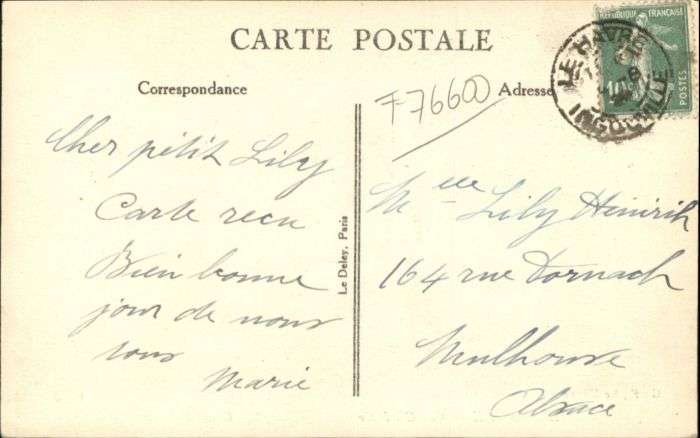 CARTE POSTALE
Correspondance
Adresse
F-76600
Cher petit Lily
Carte recu
Bien bonne
jour de nous
tous
Marie
Le Deley, Paris
Melle Lily Heinrih
164 rue Dornach
Mulhouse
Alsace
REPUBLIQUE FRANÇAISE
POSTES
LE HAVRE
INGOUVILLE